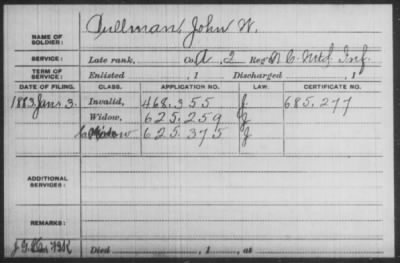 NAME OF SOLDIER: Pullman, John W.
SERVICE: Late rank, Co. A, 2 Reg't N.C. Mtd Inf.
TERM OF SERVICE: Enlisted , 1 Discharged , 1
DATE OF FILING. CLASS. APPLICATION NO. LAW. CERTIFICATE NO.
1883 Jan'y 3. Invalid, 468.355 J. 685.277
Widow, 625.259 J
625.375 J
ADDITIONAL SERVICES:
REMARKS:
Died , 1 , at